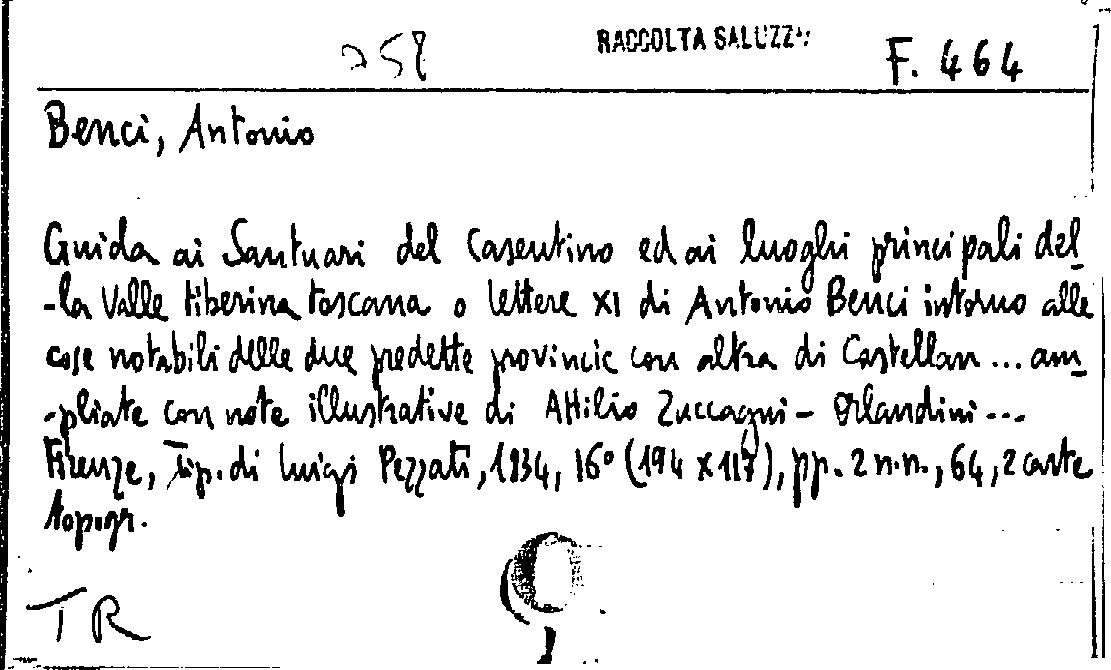 258 RACCOLTA SALUZZ F. 464
Benci, Antonio
Guida ai Santuari del Casentino ed ai luoghi principali del
-la Valle tiberina toscana o lettere XI di Antonio Benci intorno alle
cose notabili delle due predette provincie con altra di Castellan... am
-pliate con note illustrative di Attilio Zuccagni - Orlandini...
Firenze, Tip. di Luigi Pezzati, 1834, 16° (194 x 117), pp. 2 n.n., 64, 2 carte
topogr.
TR